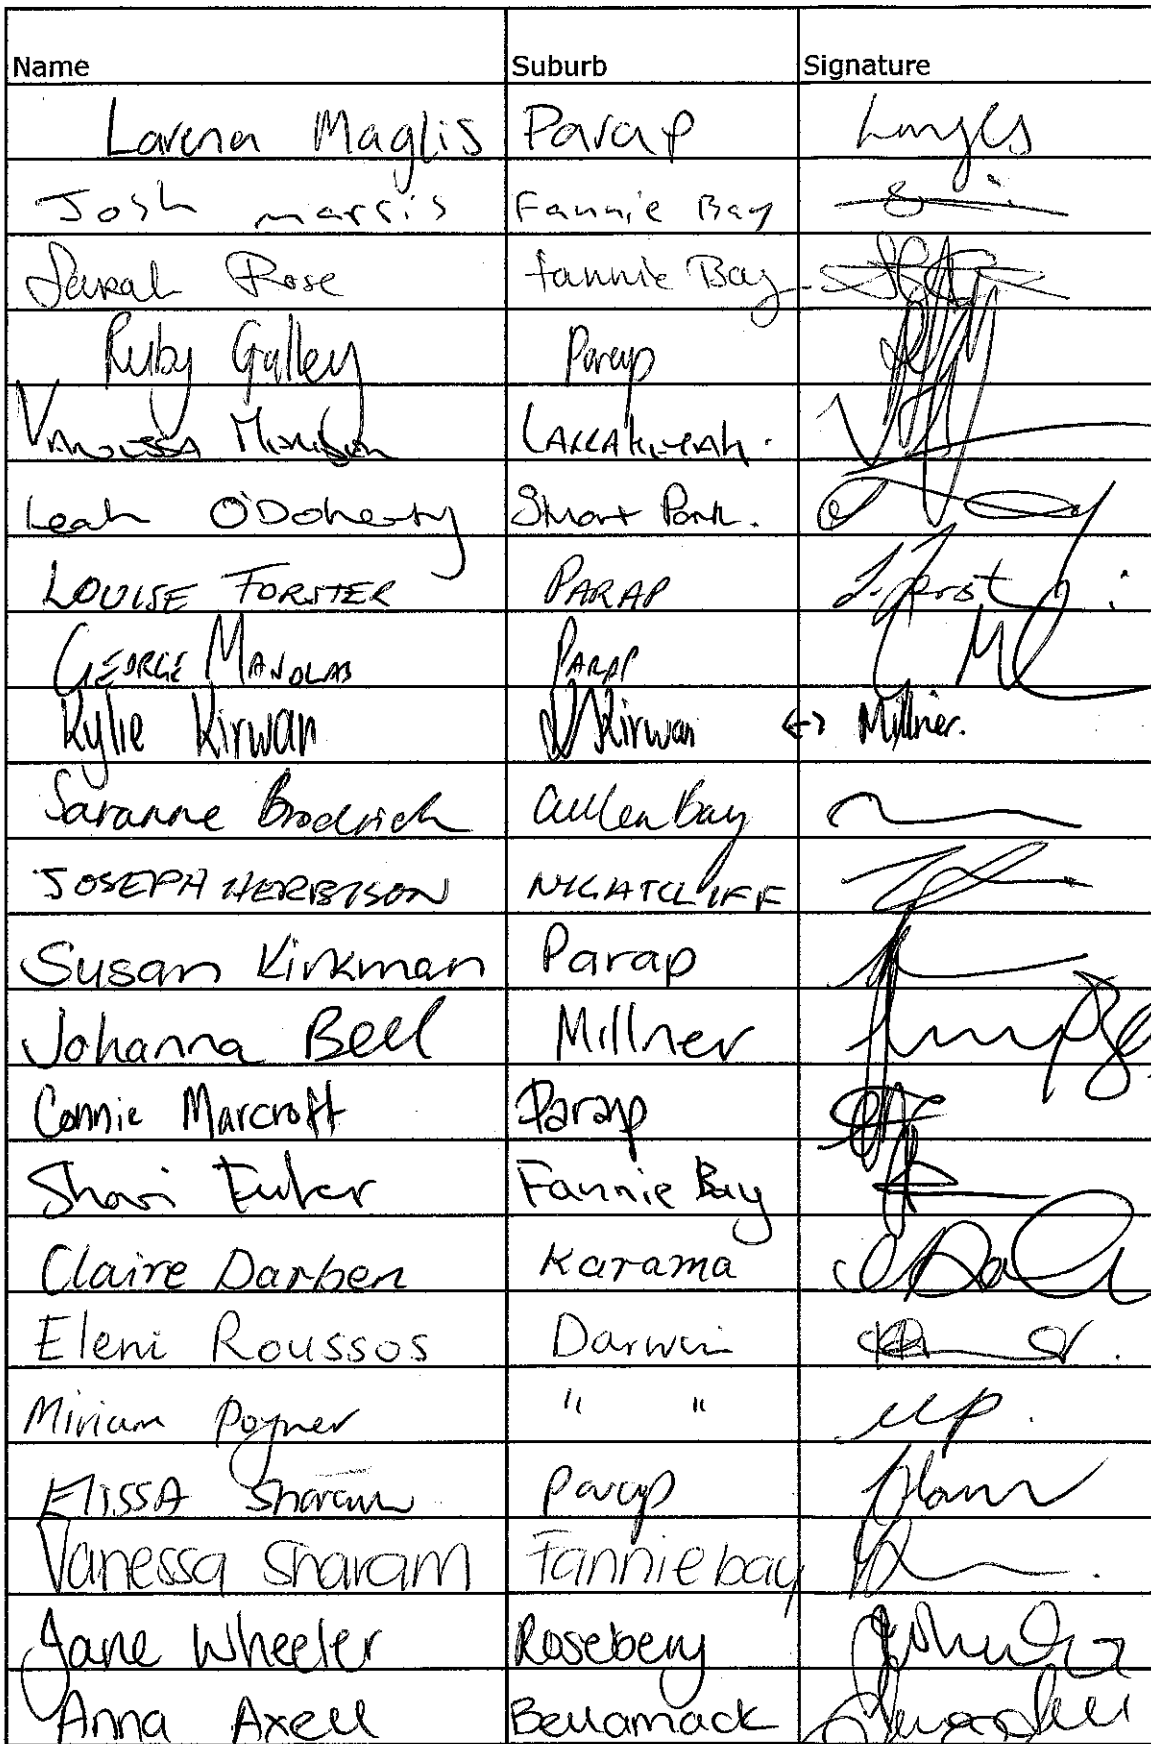 Name Suburb Signature
Lavena Maglis Parap
Josh marris Fannie Bay
Sarah Rose fannie Bay
Ruby Galley Parap
Vanessa LARRAKEYAH.
Leah O'Doherty Stuart Park.
LOUISE FORSTER PARAP
GEORGE MANOLAS PARAP
Kylie Kirwan Kirwan <-> Millner.
Saranne Brodrick Cullen bay
JOSEPH HERBISON NIGHTCLIFF
Susan Kirkman Parap
Johanna Bell Millner
Connie Marcroft Parap
Shari Fannie Bay
Claire Darben Karama
Eleni Roussos Darwin
Miriam Poyner " "
Elissa Sharam Parap
Vanessa Sharam Fannie bay
Jane Wheeler Rosebery
Anna Axell Bellamack